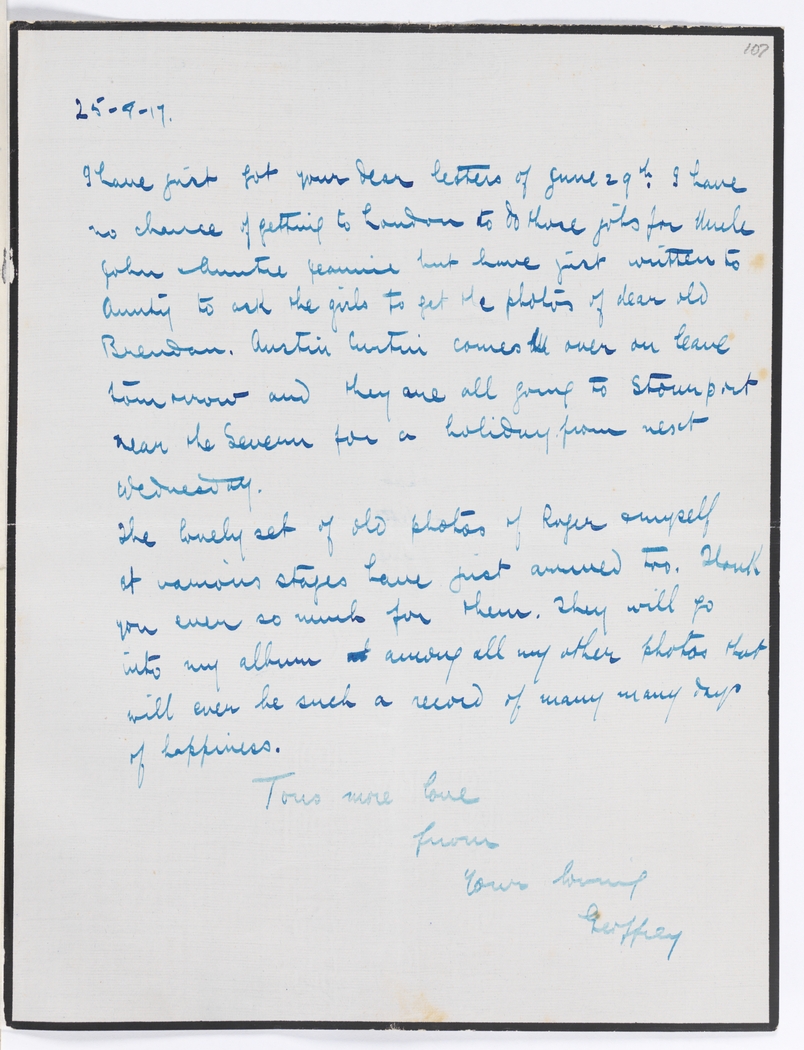 107
25-9-17.
I have just got your dear letters of June 29th. I have
no chance of getting to London to do those jobs for Uncle
John & Auntie Jeannie but have just written to
Aunty to ask the girls to get the photos of dear old
Brendan. Austin Curtin comes over on leave
tomorrow and they are all going to Stourport
near the Severn for a holiday from next
Wednesday.
The lovely set of old photos of Roger & myself
at various stages have just arrived too. Thank
you ever so much for them. They will go
into my album among all my other photos that
will ever be such a record of many many days
of happiness.
Tons more love
from
Your loving
Geoffrey